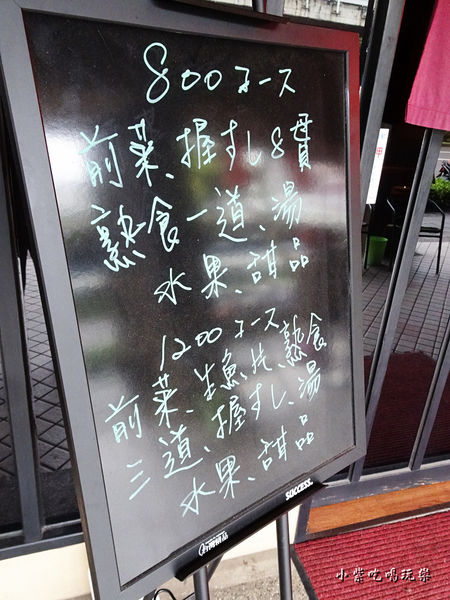 800コース
前菜、握すし8貫
熟食一道、湯
水果、甜品
1200コース
前菜、生魚片、熟食
三道、握すし、湯
水果、甜品
SUCCESS
小紫吃喝玩樂